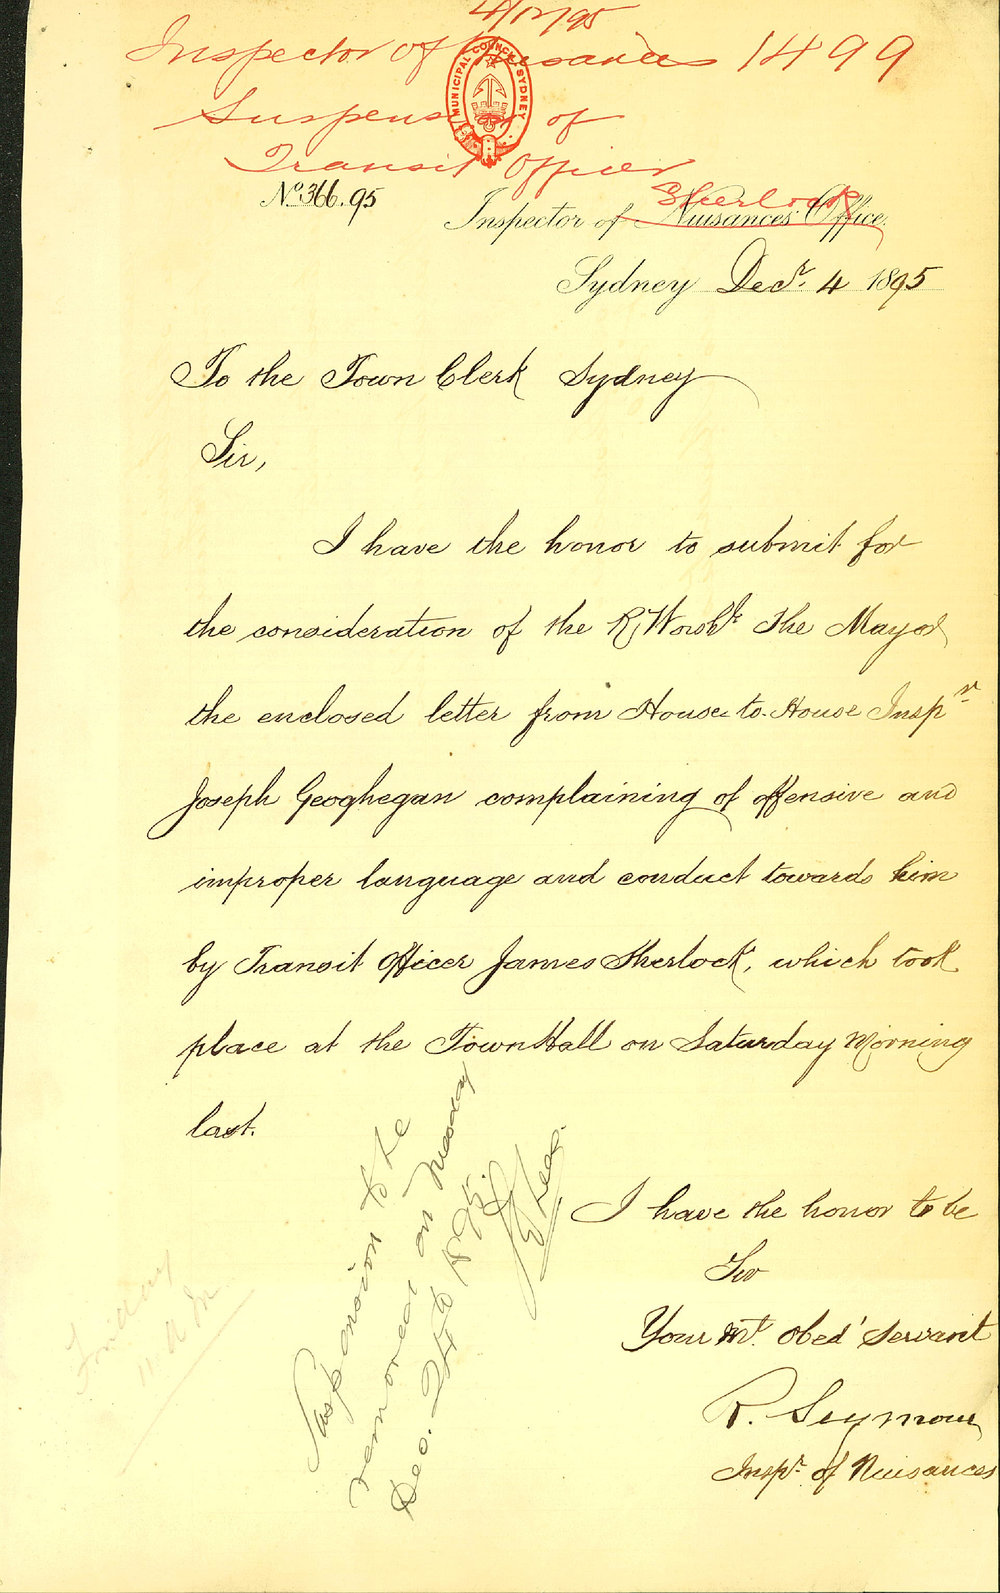 4/12/95
Inspector of Nuisances 1499
MUNICIPAL COUNCIL SYDNEY
Suspension of
Transit Officer
Sherlock
No. 366.95
Inspector of Nuisances' Office.
Sydney Decr. 4 1895
To the Town Clerk Sydney
Sir,
I have the honor to submit for
the consideration of the Rt. Worshl. The Mayor
the enclosed letter from House-to-House Inspr.
Joseph Geoghegan complaining of offensive and
improper language and conduct towards him
by Transit Officer James Sherlock, which took
place at the Town Hall on Saturday Morning
last.
I have the honor to be
Sir
Your Mt. Obed' Servant
R. Seymour
Inspr. of Nuisances
Suspension to be
removed on
Dec.
11 a m